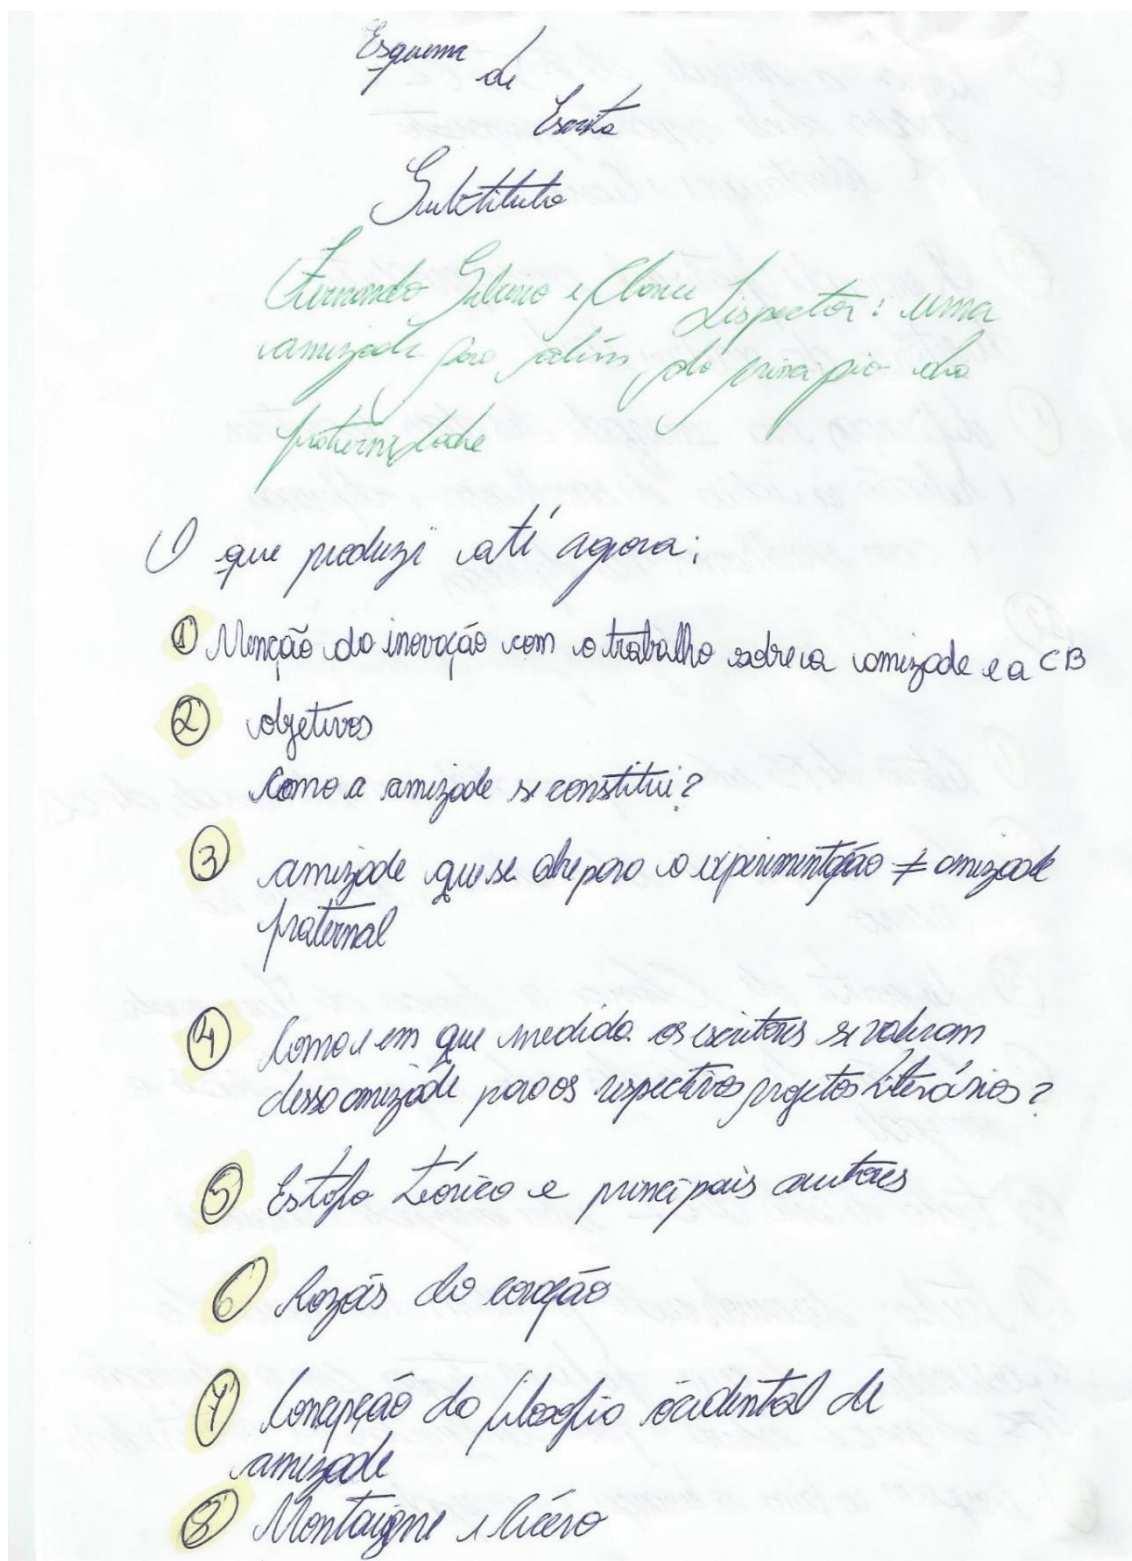 Esquema
de
Escrita
Substituto
Fernando Sabino e Clarice Lispector: uma
amizade para além do princípio da
fraternidade
O que produzi até agora:
① Menção da inovação com o trabalho sobre a amizade e a CB
② objetivos
Como a amizade se constitui?
③ amizade que se abre para a experimentação ≠ amizade
fraternal
④ Como e em que medida os escritores se valeram
dessa amizade para os respectivos projetos literários?
⑤ Estofo teórico e principais autores
⑥ Razões do coração
⑦ Concepção da filosofia ocidental de
amizade
⑧ Montaigne e Cícero